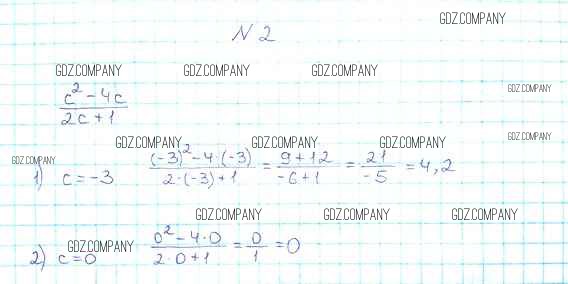 GDZ.COMPANY
N 2
GDZ.COMPANY GDZ.COMPANY GDZ.COMPANY
GDZ.COMPANY
(c² - 4c)/(2c + 1)
GDZ.COMPANY GDZ.COMPANY GDZ.COMPANY GDZ.COMPANY
GDZ.COMPANY
1) c = -3 ((-3)² - 4·(-3))/(2·(-3) + 1) = (9 + 12)/(-6 + 1) = 21/(-5) = 4,2
GDZ.COMPANY GDZ.COMPANY GDZ.COMPANY
GDZ.COMPANY
2) c = 0 (0² - 4·0)/(2·0 + 1) = 0/1 = 0